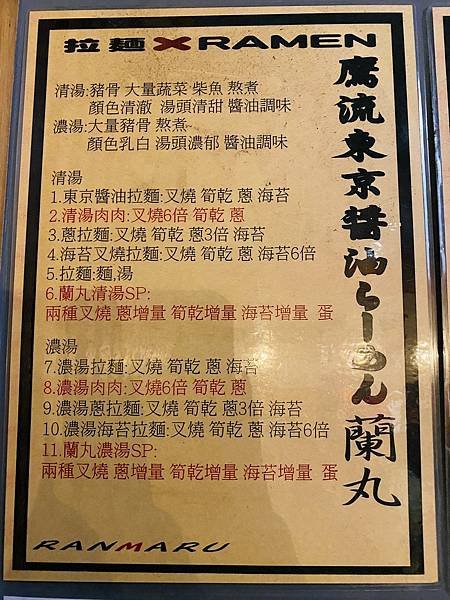 拉麵✕RAMEN
鷹流東京醬油らーめん蘭丸
清湯:豬骨 大量蔬菜 柴魚 熬煮
顏色清澈 湯頭清甜 醬油調味
濃湯:大量豬骨 熬煮
顏色乳白 湯頭濃郁 醬油調味
清湯
1.東京醬油拉麵:叉燒 筍乾 蔥 海苔
2.清湯肉肉:叉燒6倍 筍乾 蔥
3.蔥拉麵:叉燒 筍乾 蔥3倍 海苔
4.海苔叉燒拉麵:叉燒 筍乾 蔥 海苔6倍
5.拉麵:麵,湯
6.蘭丸清湯SP:
兩種叉燒 蔥增量 筍乾增量 海苔增量 蛋
濃湯
7.濃湯拉麵:叉燒 筍乾 蔥 海苔
8.濃湯肉肉:叉燒6倍 筍乾 蔥
9.濃湯蔥拉麵:叉燒 筍乾 蔥3倍 海苔
10.濃湯海苔拉麵:叉燒 筍乾 蔥 海苔6倍
11.蘭丸濃湯SP:
兩種叉燒 蔥增量 筍乾增量 海苔增量 蛋
RANMARU